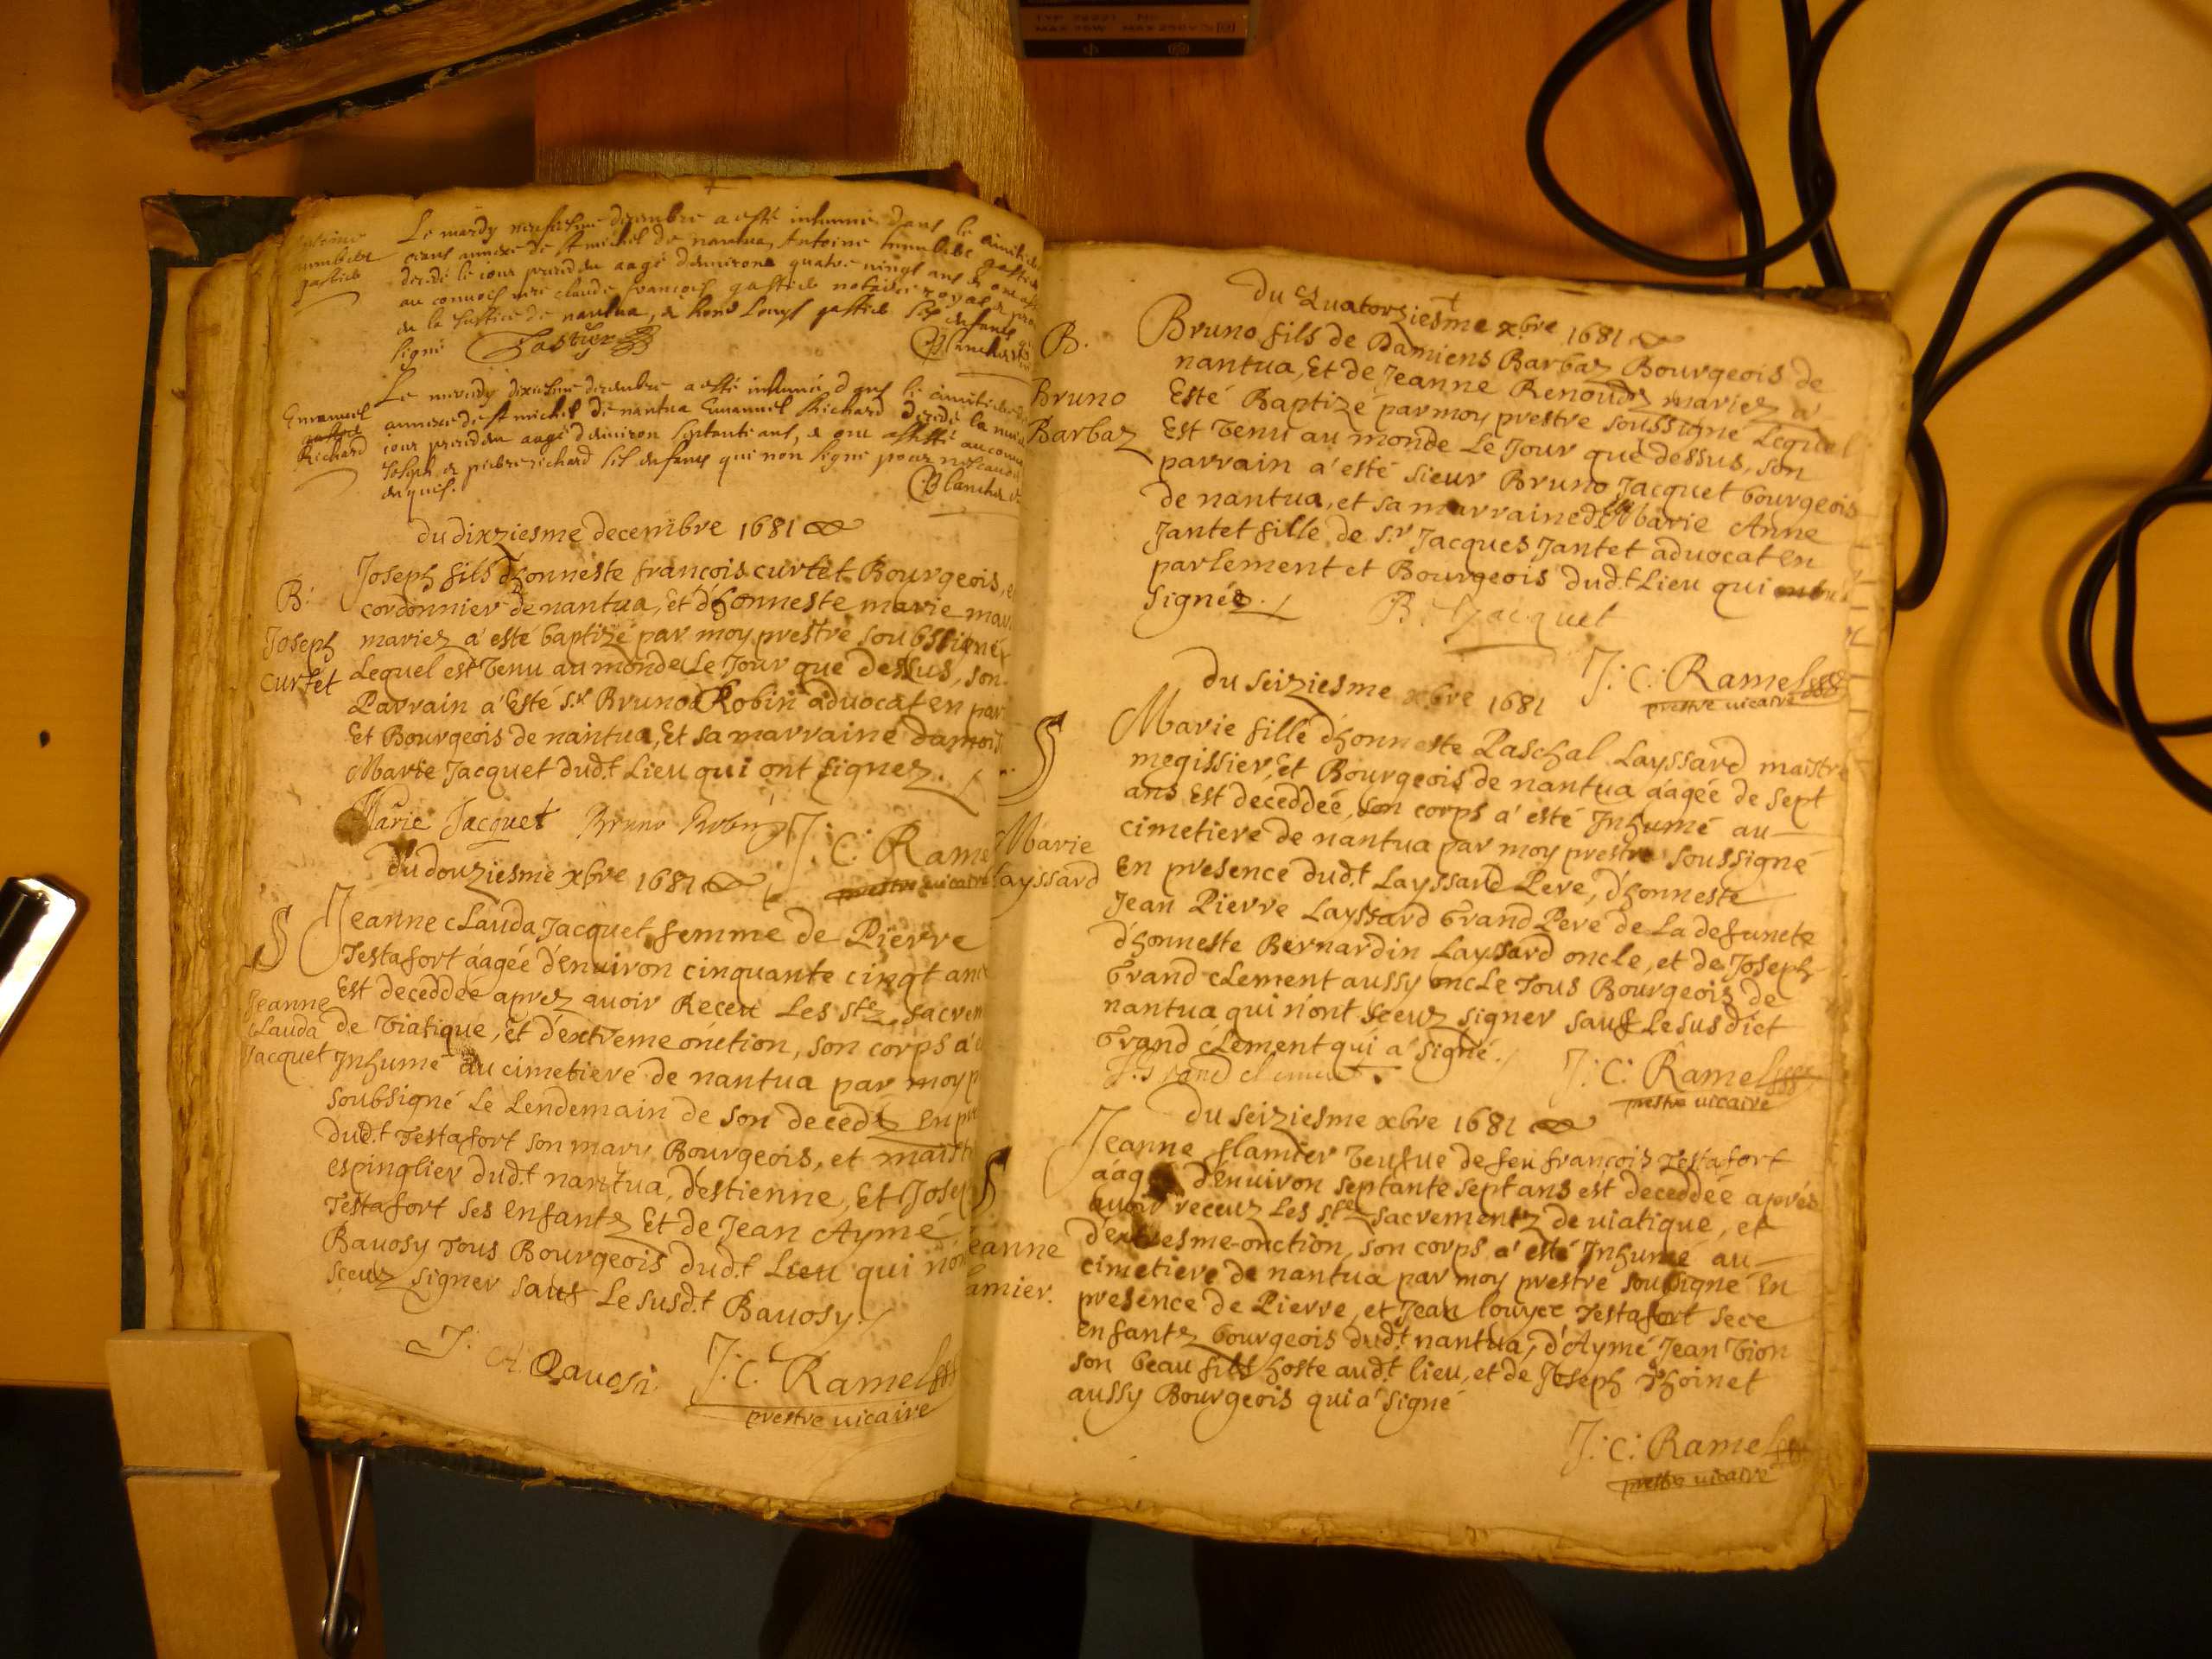 Le mardy neufiesme decembre a esté inhumé dans le cimitiere
annexe de st michel de nantua, Antoine
decedé le jour precedan aagé denuiron quatre uingt ans & ont
au conuoy claude françois gastier notaire royal &
de la Justice de nantua, & Louys gastier ses enfans
signé
Gastier
Blanchard
Le mecredy dixiesme decembre a esté inhumé dans le cimitiere
annexe de st michel de nantua Emanuel Richard decedé la nuict
jour precedan aagé denuiron septante ans, & ont assisté au
Joseph & pierre richard ses enfans qui non signé pour ne scauoir
enquis.
Emanuel
Richard
Blanchard
du dixziesme decembre 1681
B.
Joseph
curtet
Joseph fils d'honneste francois curtet Bourgeois, et
cordonnier de nantua, et d'honneste marie
mariez a' esté baptizé par moy prestre soubssigné
Lequel est Venu au monde Le Jour que dessus, son
Parrain a' Esté s.r Bruno Robin aduocat en par
Et Bourgeois de nantua, Et sa marraine damois
Marie Jacquet dud.t Lieu qui ont signez.
Marie Jacquet Bruno Robin
J. C. Rame
prestre uicaire
du douziesme xbre 1681
S
Jeanne
Clauda
Jacquet
Jeanne clauda Jacquet femme de Pierre
Testafort áagée d'enuiron cinquante cinqt ans
Est deceddée aprez auoir Receu Les stz. sacrem
de Viatique, et d'extreme onction, son corps a' e
Inhumé au cimetiere de nantua par moy p
soubsigné Le Lendemain de son decedz En pre
dud.t Testafort son mary Bourgeois, et maist
espinglier dud.t nantua, d'estienne, Et Josep
Testafort ses enfantz Et de Jean Aymé
Bauosy Tous Bourgeois dud.t Lieu qui n'on
sceuz signer sauf Le susd.t Bauosy
J. A. Bauosi
J. C. Ramel
prestre uicaire
du Quatorziesme xbre 1681
B.
Bruno
Barbaz
Bruno fils de Damiens Barbaz Bourgeois de
nantua, Et de Jeanne Renoudz mariez a'
Esté Baptizé par moy prestre soussigné Lequel
Est Venu au monde Le Jour que dessus, son
parrain a' esté sieur Bruno Jacquet bourgeois
de nantua, et sa marraine d.lle Marie Anne
Jantet fille de s.r Jacques Jantet aduocat en
parlement et Bourgeois dud.t Lieu qui ont
signéz.
B. Jacquet
J. C. Ramel
prestre uicaire
du seiziesme xbre 1681
S
Marie
Layssard
Marie fille d'honneste Paschal Layssard maistre
megissier, et Bourgeois de nantua áagée de sept
ans Est deceddée, son corps a' esté Inhumé au
cimetiere de nantua par moy prestre soussigné
En presence dud.t Layssard Pere, d'honneste
Jean Pierre Layssard Grand Pere de La defuncte
d'honneste Bernardin Layssard oncle, et de Joseph
Grand clement aussy oncle Tous Bourgeois de
nantua qui n'ont sceuz signer sauf Le susdict
Grand clement qui a' signé.
J. Grand clement
J. C. Ramel
prestre uicaire
du seiziesme xbre 1681
S
Jeanne
flamier.
Jeanne flamier Veufue de feu françois Testafort
áagée d'enuiron septante sept ans est deceddée aprés
auoir receuz Les stz sacrementz de uiatique, et
d'extresme-onction, son corps a' esté Inhumé au
cimetiere de nantua par moy prestre soubsigné En
presence de Pierre, et Jean louyce Testafort sece
enfantz bourgeois dud.t nantua, d'Aymé Jean Vion
son beau filz hoste aud.t lieu, et de Joseph Thoinet
aussy Bourgeois qui a' signé
J. C. Ramel
prestre uicaire